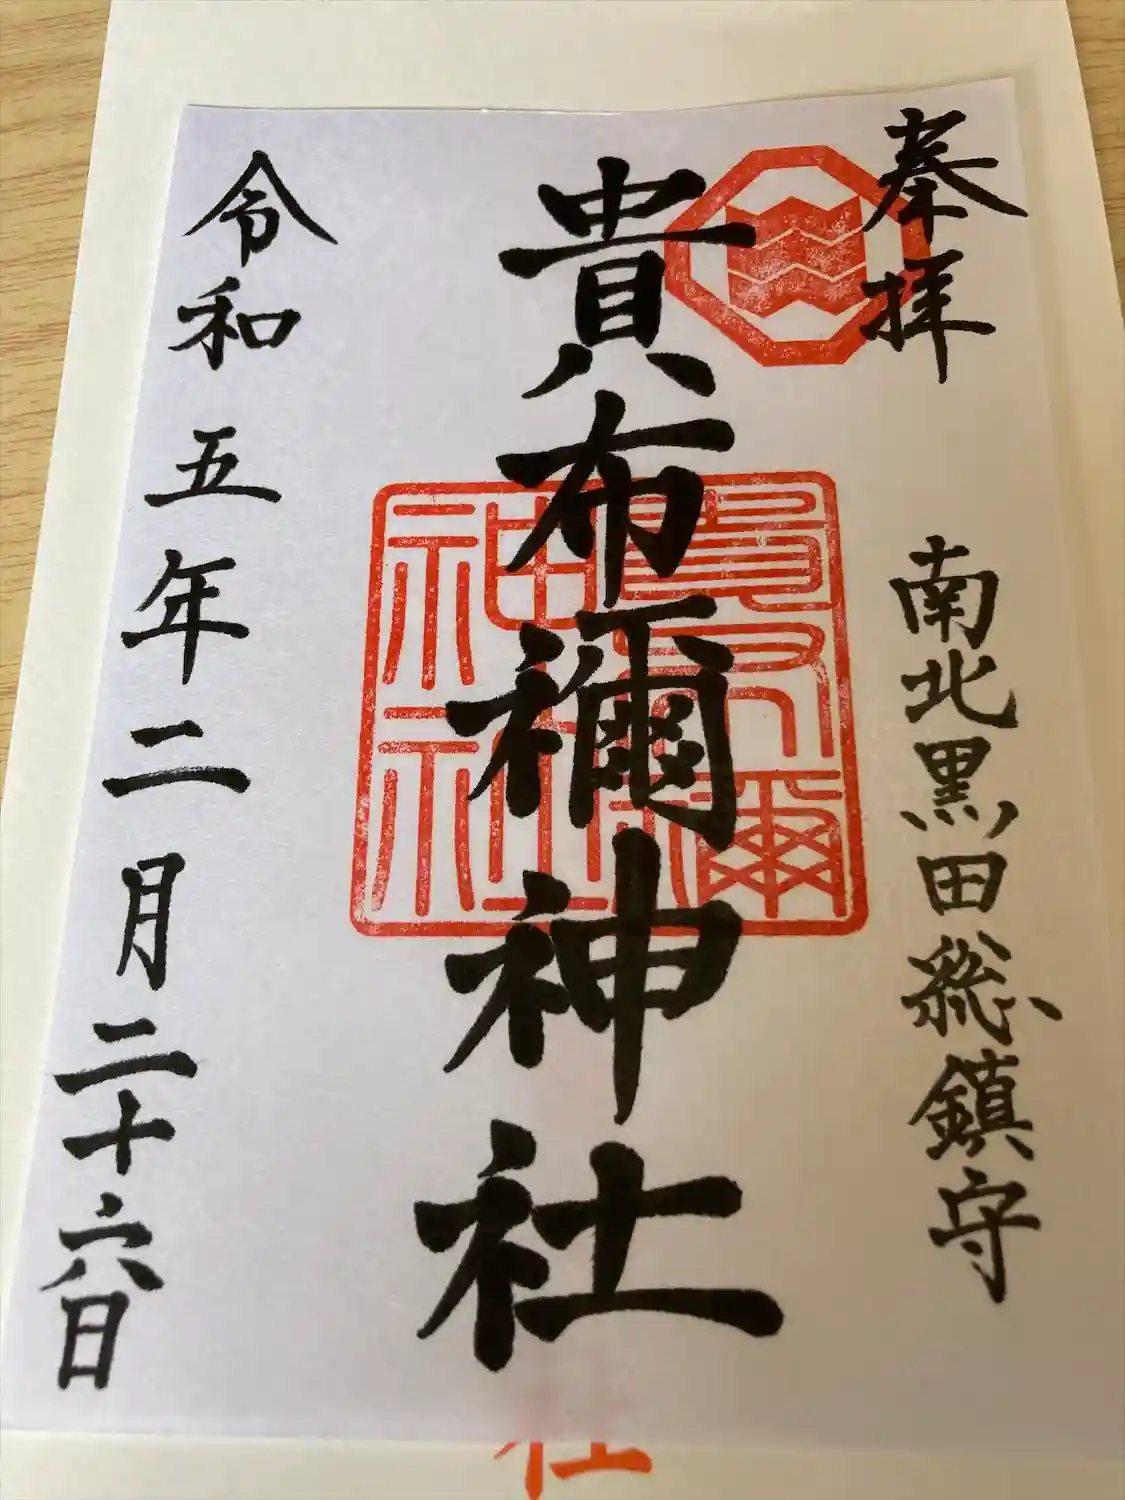 奉拝
南北黒田総鎮守
貴布禰神社
貴布禰神社
令和五年二月二十六日
社